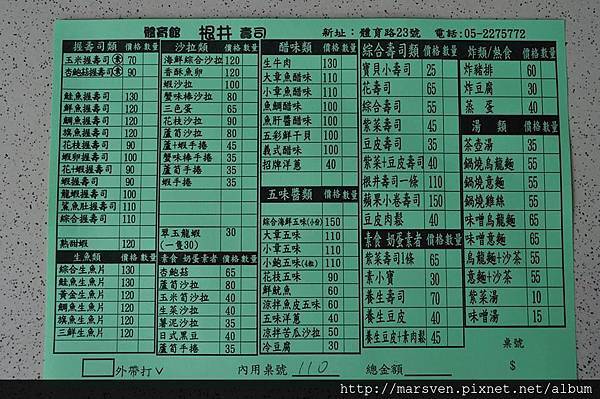 體育館 根井壽司 新址：體育路23號 電話:05-2275772
握壽司類 價格 數量
玉米握壽司(素) 70
杏鮑菇握壽司(素) 90
鮭魚握壽司 130
鮮魚握壽司 120
鯛魚握壽司 120
旗魚握壽司 120
花枝握壽司 90
蝦卵握壽司 100
花+蝦握壽司 90
蝦握壽司 90
龍蝦握壽司 100
鯊魚肚握壽司 110
綜合握壽司 110
熟甜蝦 120
生魚類 價格 數量
綜合生魚片 130
鮭魚生魚片 130
黃金生魚片 120
鯛魚生魚片 120
旗魚生魚片 120
三鮮生魚片 120
沙拉類 價格 數量
海鮮綜合沙拉 120
香酥魚卵 120
蝦沙拉 100
蟹味棒沙拉 80
三色蛋 65
花枝沙拉 90
蘆筍沙拉 80
蘆+蝦手捲 35
蟹味棒手捲 35
蘆筍手捲 35
蝦手捲 35
翠玉龍蝦 30
(一隻30)
素食 奶蛋素者 價格 數量
杏鮑菇 65
蘆筍沙拉 80
玉米筍沙拉 40
生菜沙拉 40
薯泥沙拉 35
日式黑豆 40
蘆筍手捲 35
醋味類 價格 數量
生牛肉 130
大章魚醋味 130
小章魚醋味 130
魚鯛醋味 130
魚肝醬醋味 130
五彩鮮干貝 100
義式醋味 100
招牌洋蔥 40
五味醬類 價格 數量
綜合海鮮五味(小份) 150
大章五味 130
小章五味 130
小鮑五味(4粒) 110
花枝五味 90
鮮魷魚 60
涼拌魚皮五味 60
五味洋蔥 40
涼拌苦瓜沙拉 50
冷豆腐 30
綜合壽司類 價格 數量
寶貝小壽司 25
花壽司 65
綜合壽司 55
紫菜壽司 45
豆皮壽司 35
紫菜+豆皮壽司 40
根井壽司一條 110
蘋果小卷壽司 150
豆皮肉鬆 40
素食 奶蛋素者 價格 數量
紫菜壽司1條 65
素小寶 30
養生壽司 70
養生豆皮壽司 40
養生豆皮+素肉鬆 45
炸類/熱食 價格 數量
炸豬排 60
炸豆腐 30
蒸蛋 40
湯類 價格 數量
茶壺湯 35
鍋燒烏龍麵 55
鍋燒意麵 55
鍋燒雞絲 55
味噌烏龍麵 65
味噌意麵 65
烏龍麵+沙茶 55
意麵+沙茶 55
紫菜湯 10
味噌湯 15
桌號
$
外帶打∨ 內用桌號 110 總金額
http://marsven.pixnet.net/album